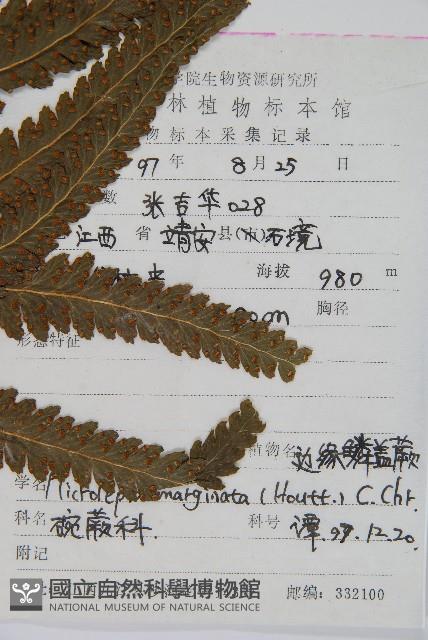 学院生物资源研究所
林植物标本馆
物标本采集记录
97年 8月25日
数 张吉华028
江西 省 靖安 县(市) 石境
海拔 980 m
胸径
形态特征
植物名 边缘鳞盖蕨
学名 Microlepia marginata (Houtt.) C. Chr.
科名 碗蕨科. 科号 谭.97.12.20.
附记
邮编: 332100
國立自然科學博物館
NATIONAL MUSEUM OF NATURAL SCIENCE